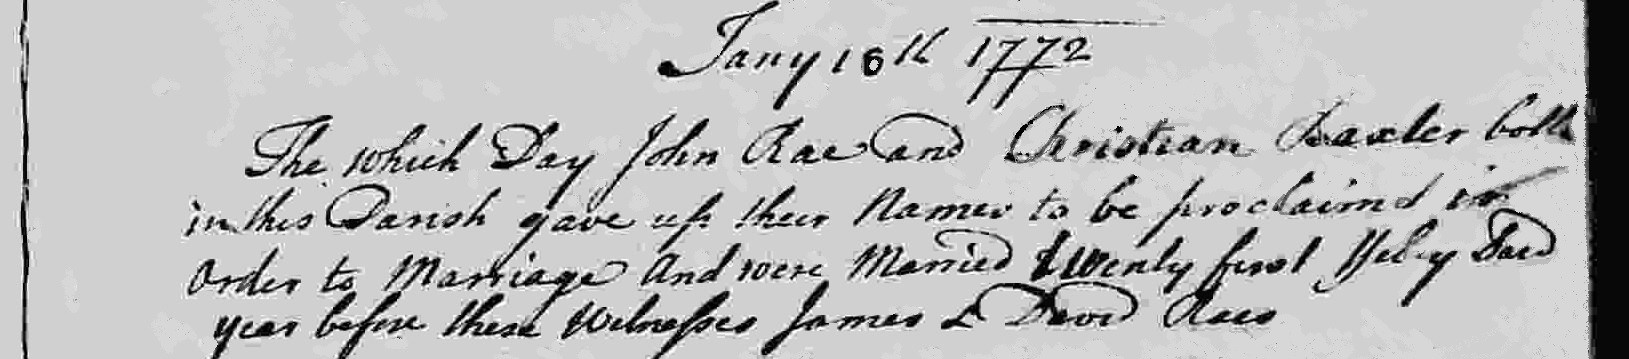 Jany 18th 1772
The which Day John Rae and Christian Baxter both
in this Parish gave up their Names to be proclaimd in
Order to Marriage And were Married twenty first ffebry Said
year before these Witnesses James & David Raes